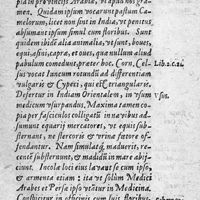 pia in prouincijs Arabiæ, et apud nos gra-
men. Quidam ipsum vocarunt pastum Ca-
melorum, licet non sint in India, vt penitus
absumant ipsum simul cum floribus. Sunt
quidem ibidē alia animalia, vt sunt, boues,
equi, asini, capra, et oues, quæ nullum aliud
pabulum comedunt, præter hoc. Corn. Cel-
sus vocat Iuncum rotundū ad differentiam
vulgaris & Cyperi, qui est̄ triangularis.
Defertur in Indiam Orientalem, in vsum
medicum vsurpandus, Maxima tamen co-
pia per fasciculos colligatā in nauibus ad-
uehunt equarij mercatores, vt equis subster-
nant, ne stercoris et vrinæ fœtore of-
fendantur. Nam simulatq; maduerit, re-
centē substernunt, & madidū in mare abij-
ciunt. Inicēs loca eius lauant se cum ipso,
& armenta etiam : ita vt solum Medici
Arabes et Persæ ipso vtētur in Medicina.
Conspicitur in officinis cum suis floribus.
Lib. 2. c. 21.
Vsus.